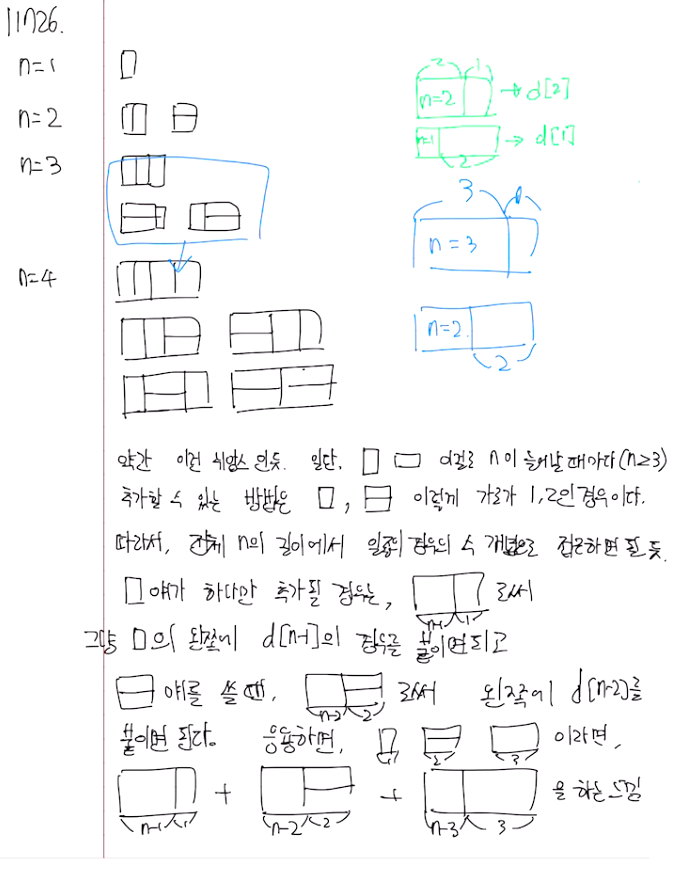 11726.
n=1
n=2
n=3
n=4
2 1
n=2 → d[2]
n=1 → d[1]
2
3 1
n=3
n=2
2
약간 이런 뉘앙스인듯. 일단, 이걸로 n이 늘어날 때마다(n≥3)
추가할 수 있는 방법은 , 이렇게 가로가 1,2인 경우이다.
따라서, 전체 n의 길이에서 일종의 경우의 수 개념으로 접근하면 될 듯.
얘가 하나만 추가될 경우는, 로써
n-1 1
그냥 의 왼쪽에 d[n-1]의 경우를 붙이면 되고
얘를 쓸 땐, 로써 왼쪽에 d[n-2]를
n-2 2
붙이면 된다. 응용하면, 이라면,
1 2 3
+ + 을 하는 느낌
n-1 1 n-2 2 n-3 3